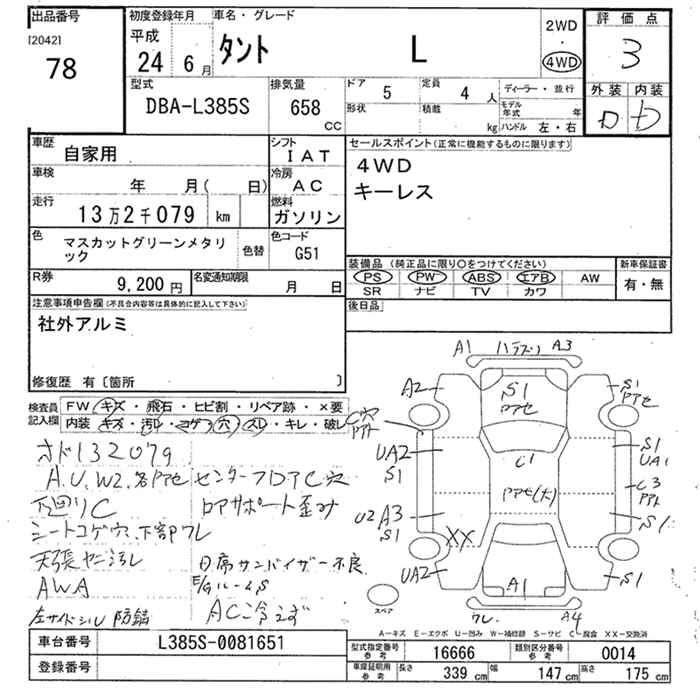 出品番号
[2042]
78
初度登録年月
平成
24 6月
車名・グレード
タント L
2WD
・
4WD
評価点
3
外装 内装
D D
型式
DBA-L385S
排気量
658
CC
ドア 5
定員 4 人
形状
積載 kg
ディーラー・並行
モデル年式 年
ハンドル 左・右
車歴
自家用
シフト
IAT
車検
年 月( 日)
冷房
AC
走行
13万2千079 km
燃料
ガソリン
色
マスカットグリーンメタリ
ック
色替
色コード
G51
R券
9,200円
名変通知期限
月 日
セールスポイント(正常に機能するものに限ります)
4WD
キーレス
装備品 (純正品に限り○をつけてください)
PS PW ABS エアB AW
SR ナビ TV カワ
新車保証書
有・無
後日品
注意事項申告欄(不具合内容等は具体的に記入して下さい)
社外アルミ
修復歴 有〔箇所 〕
検査員
記入欄
FW キズ・飛石・ヒビ割・リペア跡・×要
内装 キズ・汚れ・コゲ・穴・スレ・キレ・破レ
オド132079
A.U.W2.各Pアセ センターフロアC穴
下回りC ロアサポート歪み
シートコゲ穴.下部フレ
天張ヤニ汚レ 日席サンバイザー不良
AWA E/GルームS
左サイドシル防錆 AC冷えず
A1 ハテヌリ A3
A2
S1
Pアセ
S1
Pアセ
C穴
UA2
S1
C1
S1
UA1
Pアセ(大)
C3
U2 A3
S1
S1
XX
UA2
A1
S1
スペア
ワレ A4
A-キズ E-エクボ U-凹み W-補修跡 S-サビ C-腐食 XX-交換済
車台番号
L385S-0081651
登録番号
型式指定番号
参考
16666
類別区分番号
参考
0014
車庫証明用
参考
長さ 339 cm
幅 147 cm
高さ 175 cm